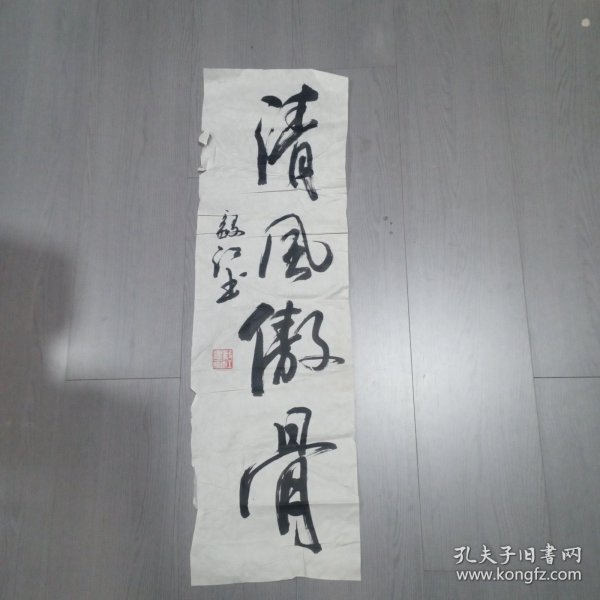 清風傲骨
毅江书
孔夫子旧書网
www.kongfz.com